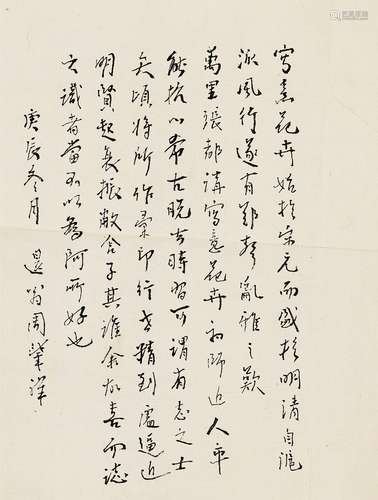 寫意花卉始於宋元而盛於明清自滬
派風行遂有鄭聲亂雅之歎
萬里張都講寫意花卉初師近人率
能抗心希古脫去時習可謂有志之士
矣頃將所作彙印行世精到處逼近
明賢起衰振敝舍子其誰余故喜而誌
之識者當不以為阿所好也
庚辰冬月 退翁周肇祥